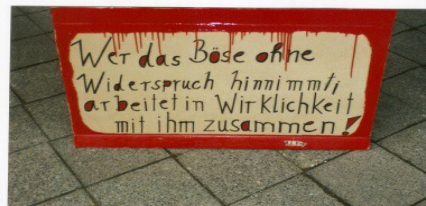 Wer das Böse ohne
Widerspruch hinnimmt,
arbeitet in Wirklichkeit
mit ihm zusammen!